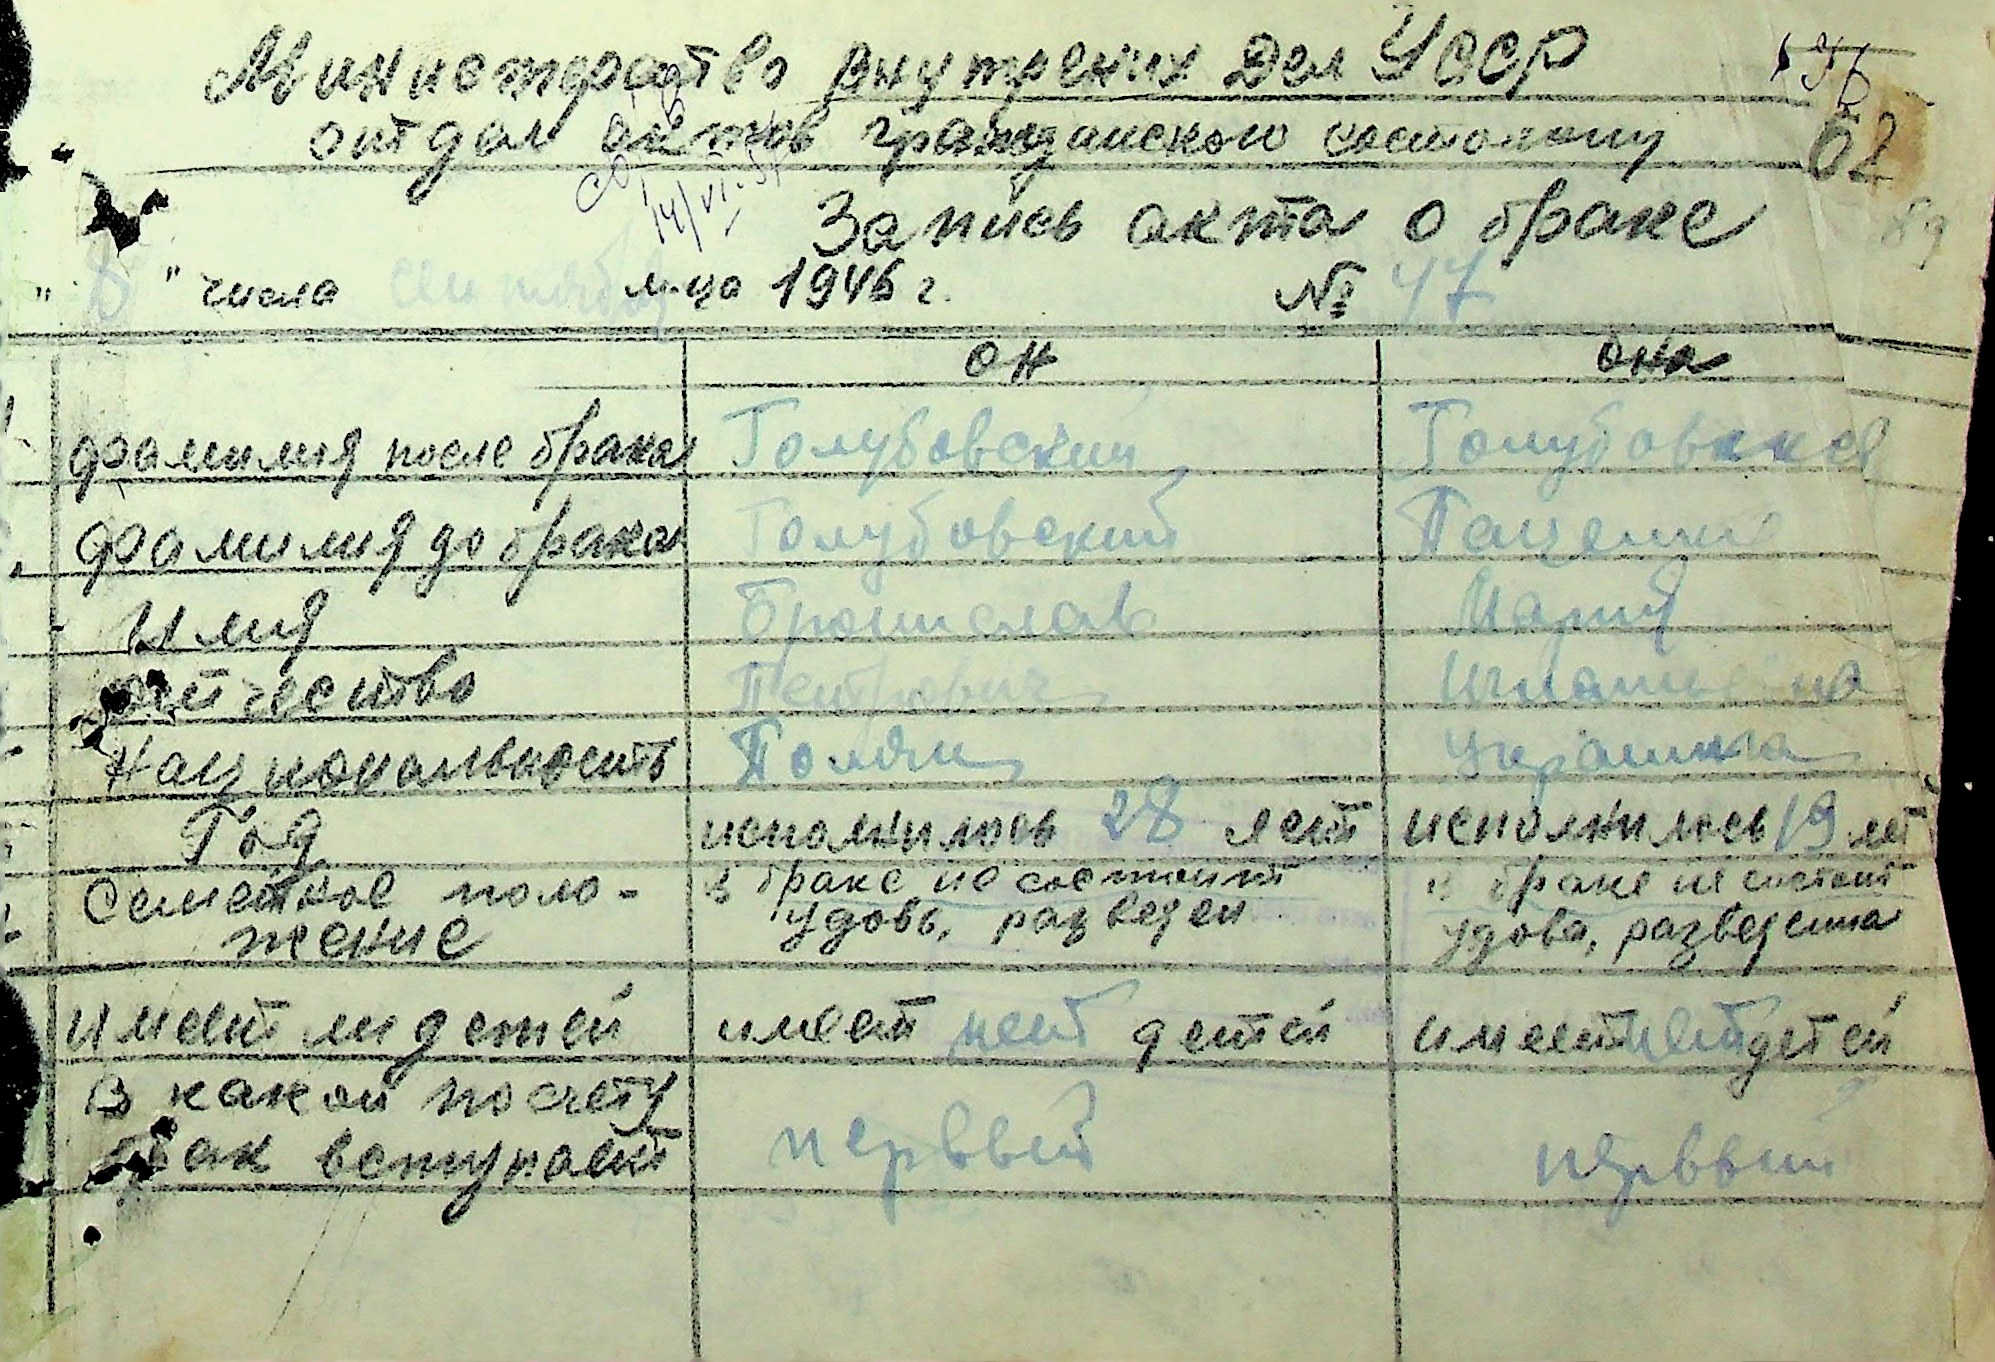 Министерство внутрених Дел УССР
отдел актов гражданского состоянию
62
Запись акта о браке
89
"8" числа сентября м-ца 1946 г. № 47
он она
фамилия после брака Голубовский Голубовская
фамилия до брака Голубовский
Имия Бронислав Мария
отчество Петрович
Национальность Поляк украинка
Год исполнилось 28 лет исполнилось 19 лет
Семейное поло- в браке не состоит в браке не состоит
жение удовь, разведен удова, разведенна
имеет ли детей имеет нет детей имеет нет детей
В какой по счету
брак вступает первый первый